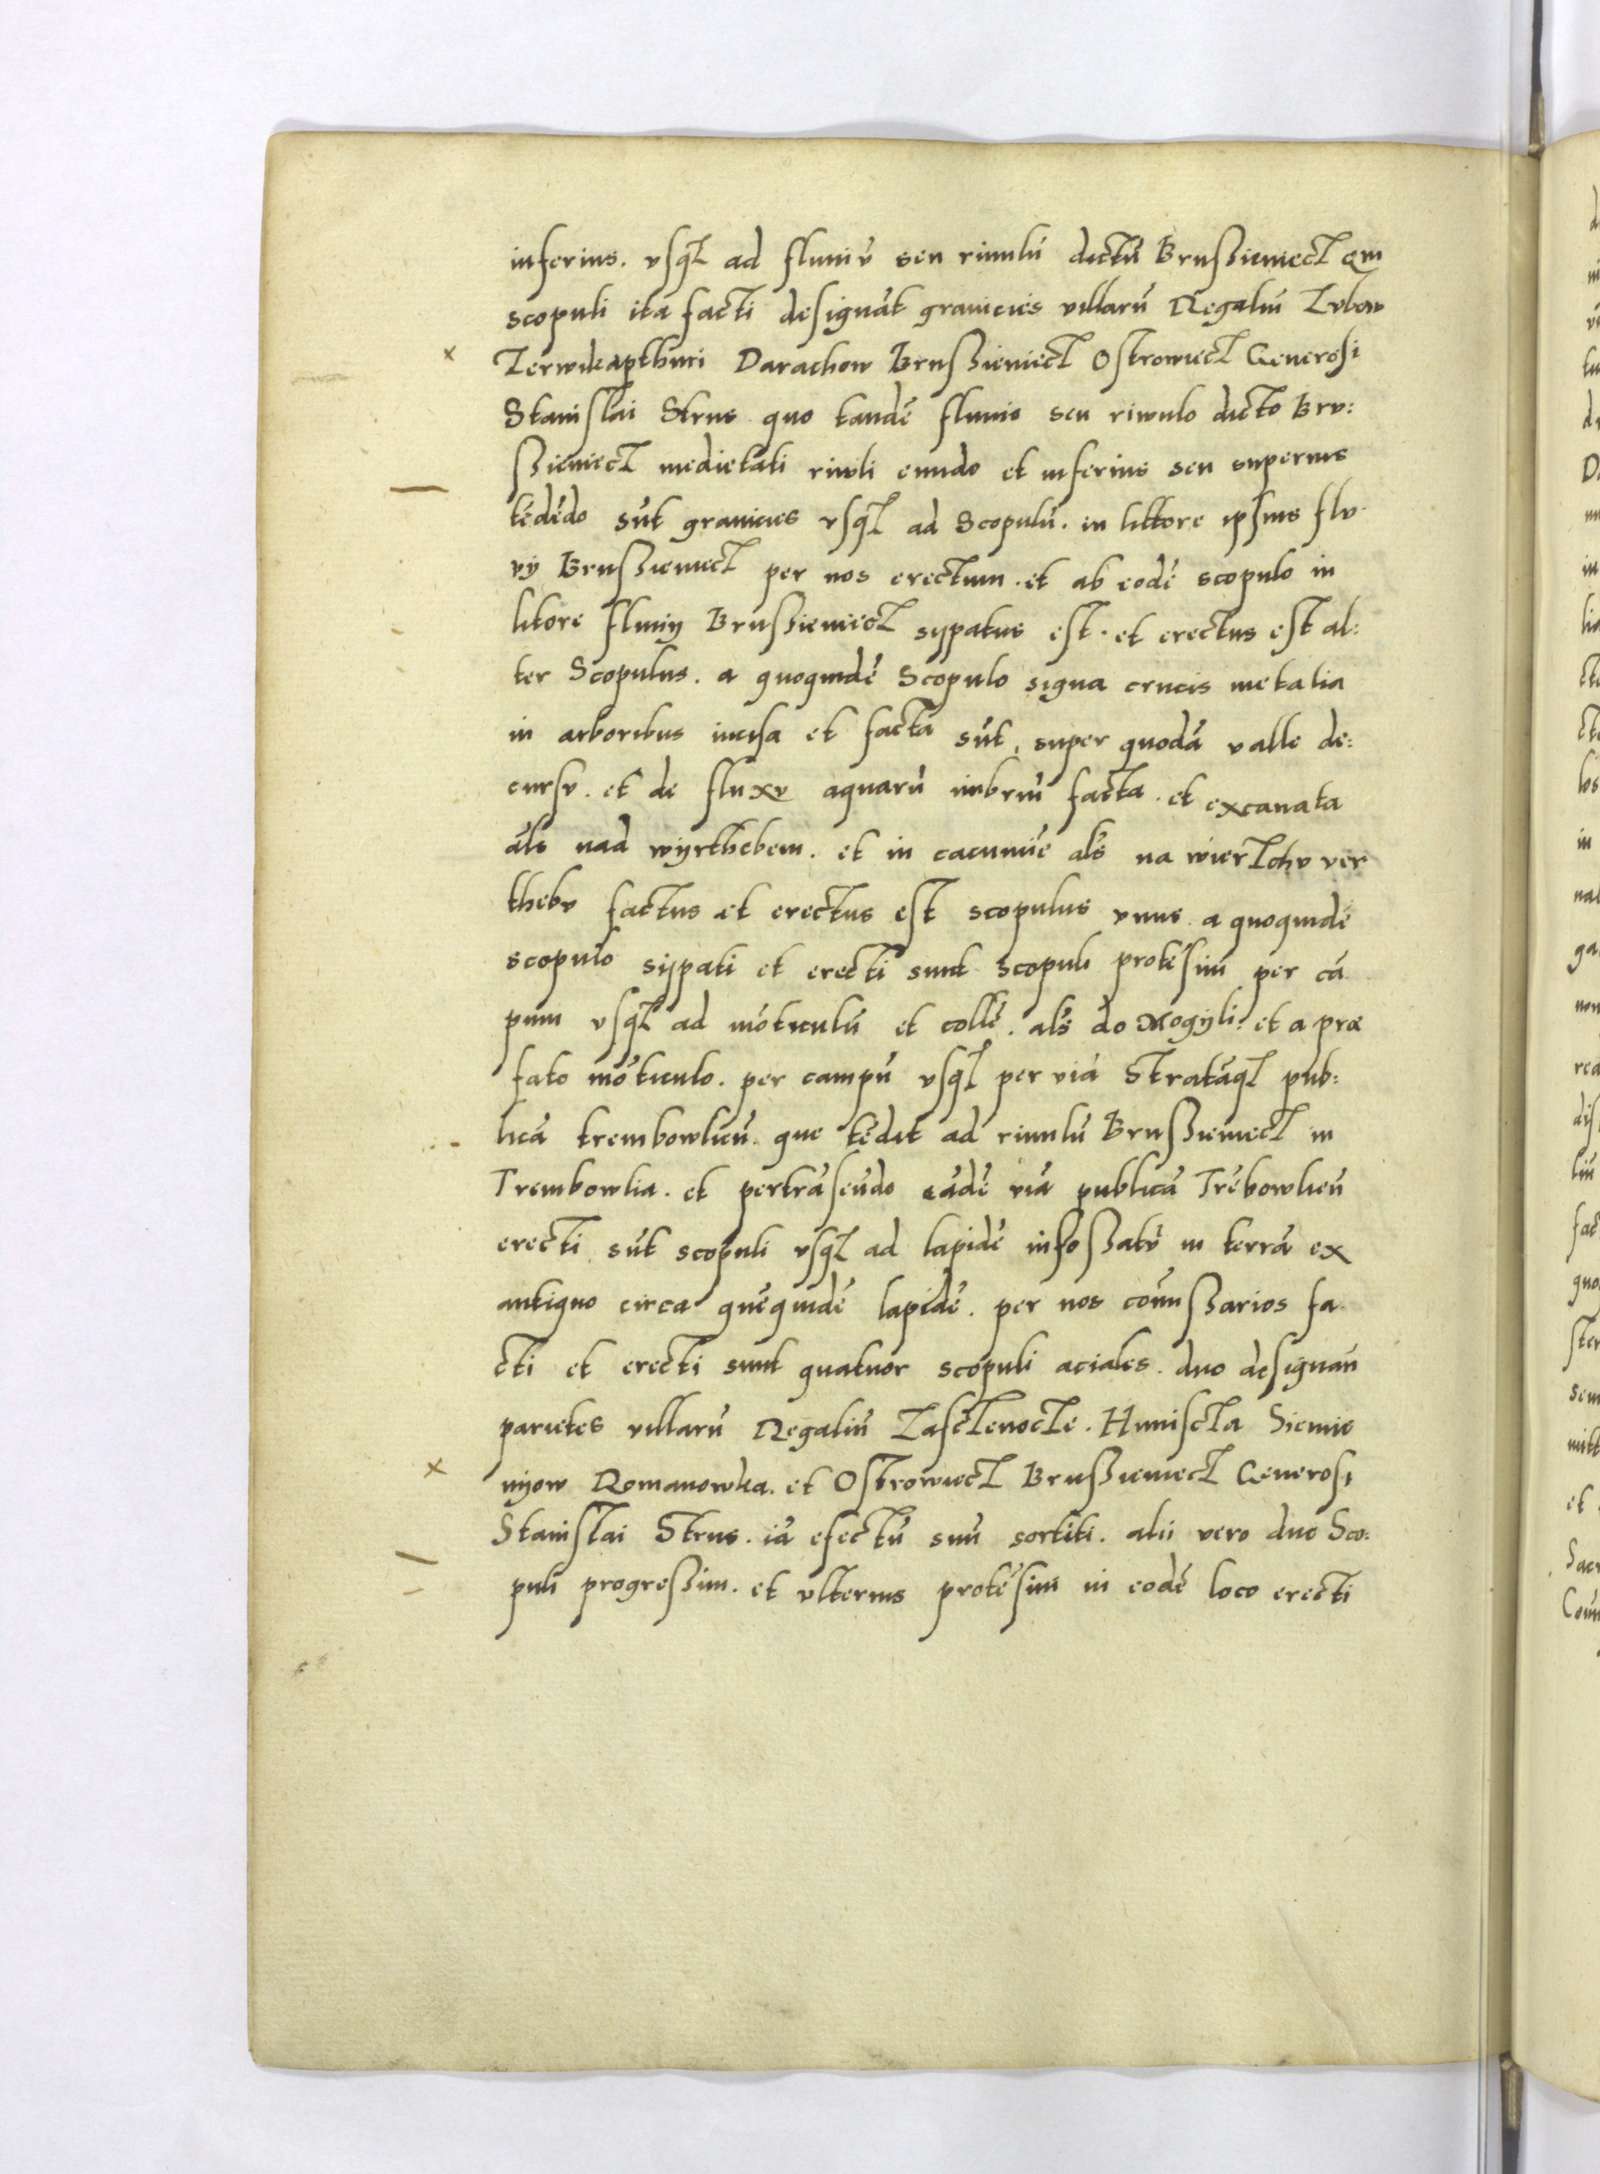 inferius. vsq̃ ad fluuiũ seu riuulũ dictũ Brusʒieniecz qui
scopuli ita facti designãt granicies villarũ Regaliũ Zubow
Darachow Brusʒieniecz Ostrowiecz Generosi
Stanislai Strus quo tandẽ fluuio seu riwulo dicto Bru:
sʒieniecz medietati riwli eundo et inferius seu superius
tẽdẽdo sũt granicies vsq̃ ad Scopulũ. in littore ipsius flu-
vÿ Brusʒieniecz per nos erectum. et ab eodẽ scopulo in
litore fluuÿ Brusʒieniecz sÿpatus est. et erectus est al:
ter Scopulus. a quoquidẽ Scopulo signa crucis metalia
in arboribus incisa et facta sũt, super quodã valle de:
cursv. et de fluxv aquarũ imbriũ facta. et excauata
als nad wÿrthebem. et in cacumĩe als na wierzchv ver
thebv factus et erectus est scopulus vnus a quoquidẽ
scopulo sÿpati et erecti sunt scopuli protẽsim per cã
pum vsq̃ ad mõticulũ et collẽ. als do Mogÿli: et a præ
fato mõticulo. per campũ vsq̃ per viã Stratãq̃ pub:
licã trembowlieñ. que tẽdit ad riuulũ Brusʒieniecz in
Trembowlia. et pertrãseũdo eãdẽ viã publicã Trẽbowlieñ
erecti sũt scopuli vsq̃ ad lapidẽ infosʒatũ in terrã ex
antiquo circa quẽquidẽ lapidẽ. per nos com̃isʒarios fa
cti et erecti sunt quatuor scopuli aciales. duo designañ
parietes villarũ Regaliũ Zasczenocze. Humiscza Siemie
nÿow Romanowka. et Ostrowiecz Brusʒieniecz Generosi
Stanislai Strus. iã efectũ suũ sortiti. alii vero duo Sco:
puli progresʒim. et vlterius protẽsim in eodẽ loco erecti